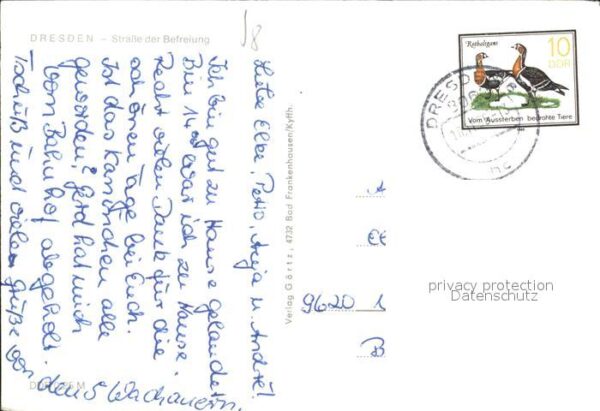 DRESDEN – Straße der Befreiung
8
Liebe Elke, Petro, Anja u. André!
Ich bin gut zu Hause gelandet.
Um 14 00 war ich zu Hause.
Recht vielen Dank für die
schönen Tage bei Euch.
Ist das Kaninchen alle
geworden? Gerd hat mich
vom Bahnhof abgeholt.
Tschüß und viele Grüße von
den 5 Wachauern.
Verlag Görtz, 4732 Bad Frankenhausen/Kyffh.
Rothalsgans
10
DDR
Vom Aussterben bedrohte Tiere
DRESDEN
A
9620
B
privacy protection
Datenschutz